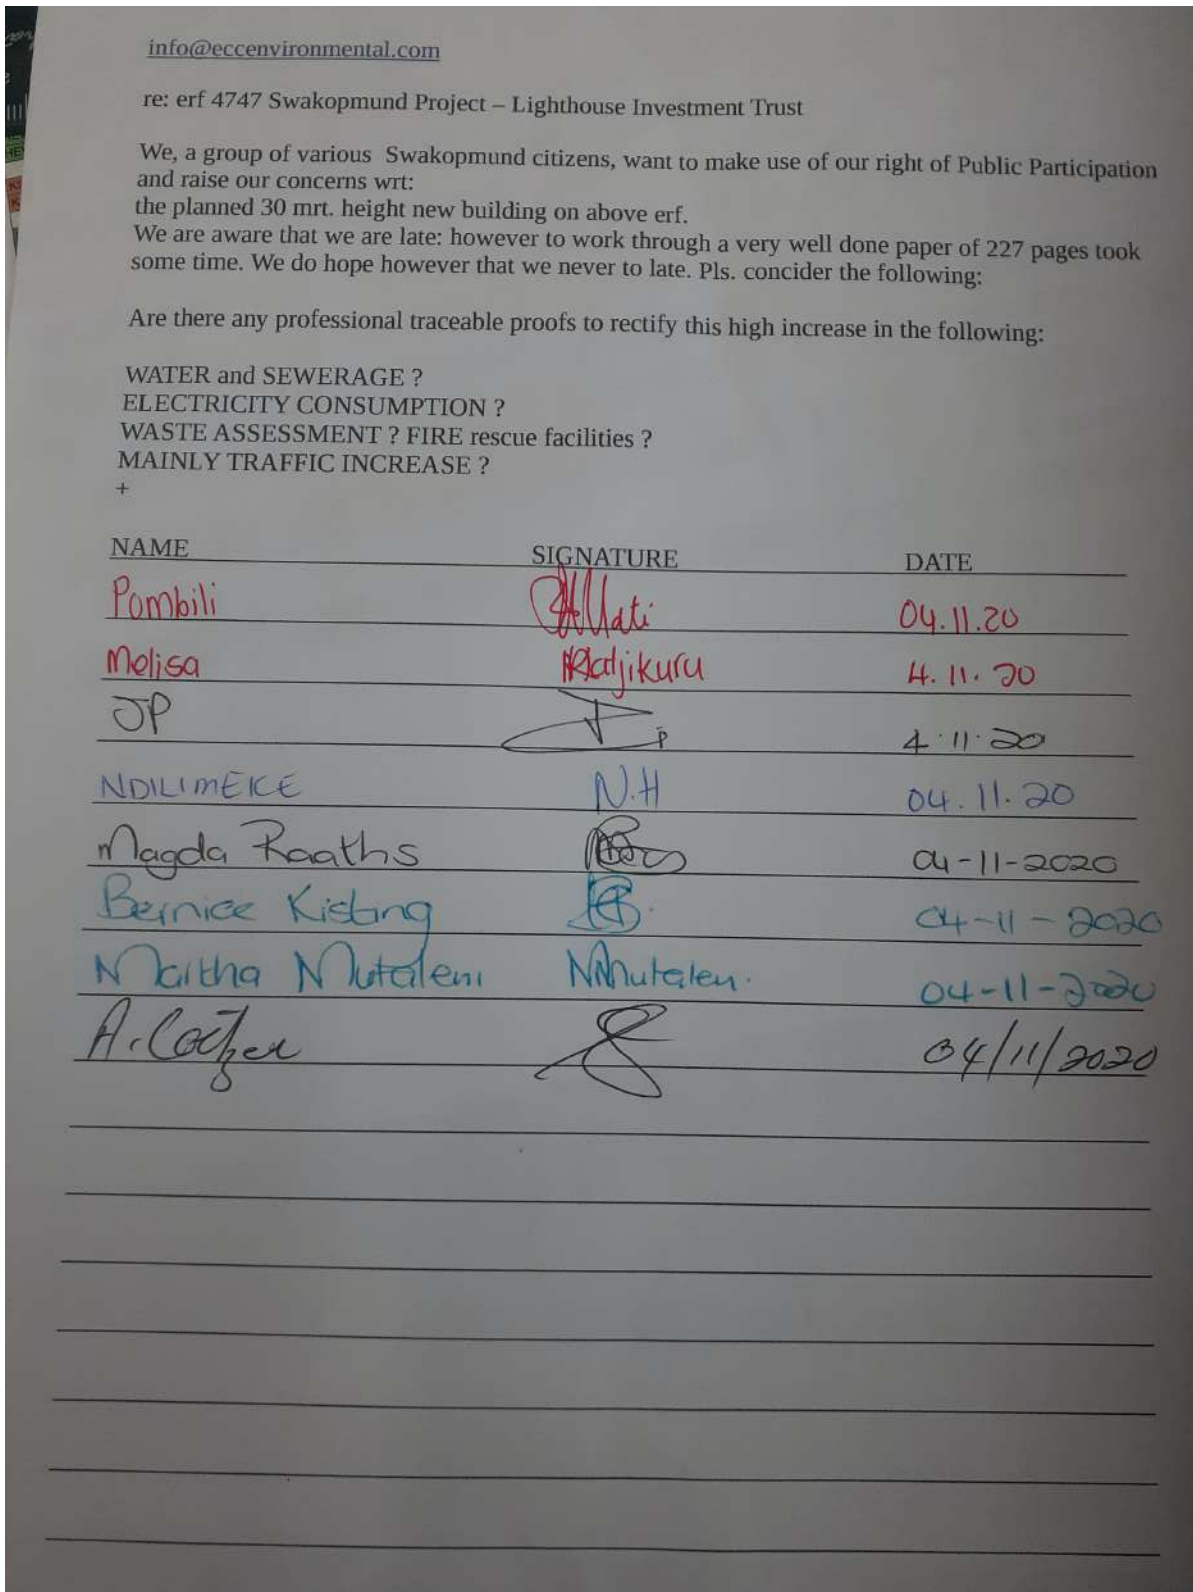 info@eccenvironmental.com
re: erf 4747 Swakopmund Project – Lighthouse Investment Trust
We, a group of various Swakopmund citizens, want to make use of our right of Public Participation
and raise our concerns wrt:
the planned 30 mrt. height new building on above erf.
We are aware that we are late: however to work through a very well done paper of 227 pages took
some time. We do hope however that we never to late. Pls. concider the following:
Are there any professional traceable proofs to rectify this high increase in the following:
WATER and SEWERAGE ?
ELECTRICITY CONSUMPTION ?
WASTE ASSESSMENT ? FIRE rescue facilities ?
MAINLY TRAFFIC INCREASE ?
+
NAME SIGNATURE DATE
Pombili 04.11.20
Melisa 4.11.20
JP 4.11.20
NDILIMEKE N.H 04.11.20
Magda Raaths 04-11-2020
Bernice Kisting 04-11-2020
Martha Mutaleni 04-11-2020
A. Coetzee 04/11/2020